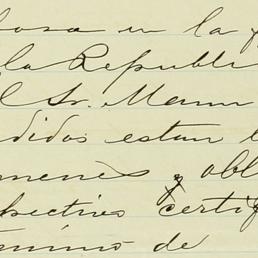 posa en la
la Republi
l Sr. Manu
didos estan
menes y obl
spectivos certif
termino de